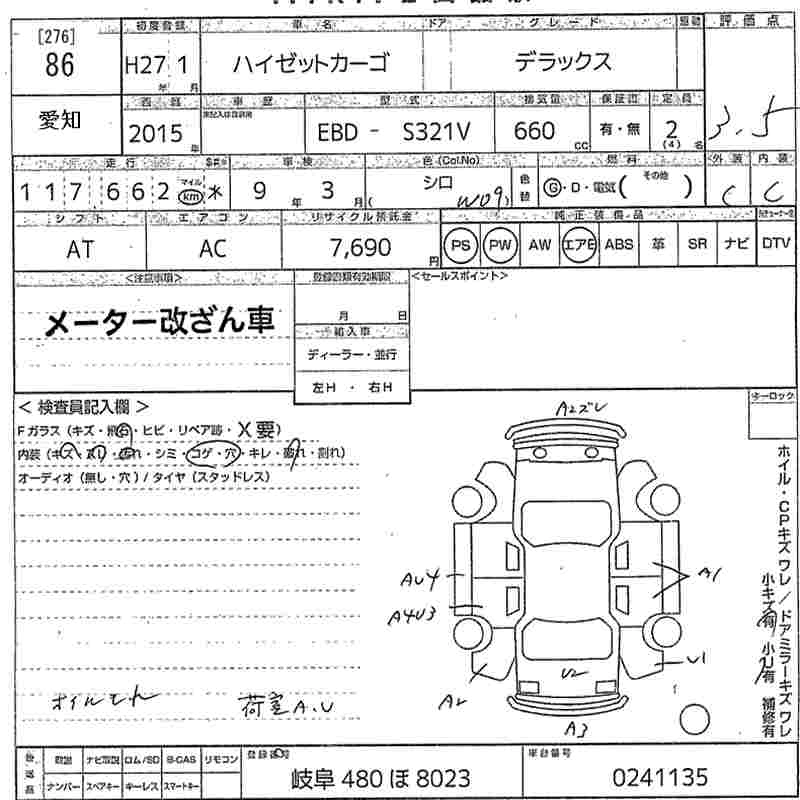 初度登録 車名 ドア グレード 駆動 評価点
[276]
86 H27 1 年 月 ハイゼットカーゴ デラックス
愛知 西暦 車歴 型式 排気量 保証書 定員 3.5
2015 年 EBD - S321V 660 CC 有・無 2 (4) 名
走行 車検 色(Col.No) 燃料 外装 内装
117,662 マイル km 9 年 3 月 シロ ( W09 ) 色替 G・D・電気 ( その他 ) C C
シフト エアコン リサイクル預託金 純正装備品
AT AC 7,690 円 PS PW AW エアB ABS 革 SR ナビ DTV
<注意事項> 登録書類有効期限 <セールスポイント>
メーター改ざん車 月 日
輸入車
ディーラー・並行
左H ・ 右H
キーロック
< 検査員記入欄 >
Fガラス (キズ・飛石・ヒビ・リペア跡・X要)
内装 (キズ・汚れ・シミ・コゲ・穴・キレ・割れ)
オーディオ (無し・穴) / タイヤ (スタッドレス)
A2ズレ
AU4 A1
A4U3
A2 U2 U1
A3
ホイル・CPキズワレ/ドアミラーキズワレ
小キズ有/小U有 補修有
オイルもれ 荷室A.U
後送品 取説 ナビ取説 ロム/SD B-CAS リモコン 登録番号 車台番号
ナンバー スペアキー キーレス スマートキー 岐阜 480 ほ 8023 0241135